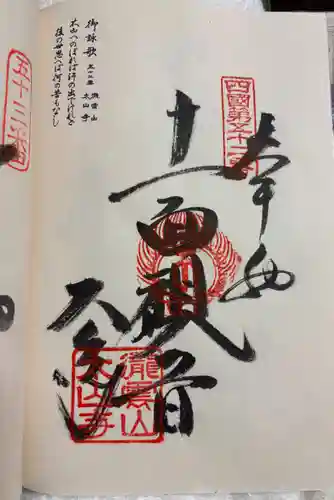 四國第五十二番
奉納
十一面観音
太山寺
瀧雲山
太山寺
御詠歌 五十二番 瀧雲山 太山寺
太山へのぼれば汗の出でけれど
後の世思へば何の苦もなし
五十三番